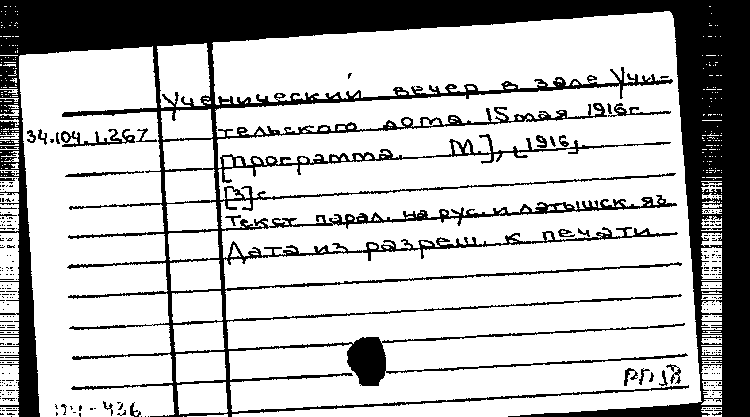 Ученический вечер в зале Учи=
34.104.1.267 тельского дома. 15 мая 1916 г.
[Программа. М.], [1916].
[3] с.
Текст парал. на рус. и латышск. яз.
Дата из разреш. к печати
РП
-436